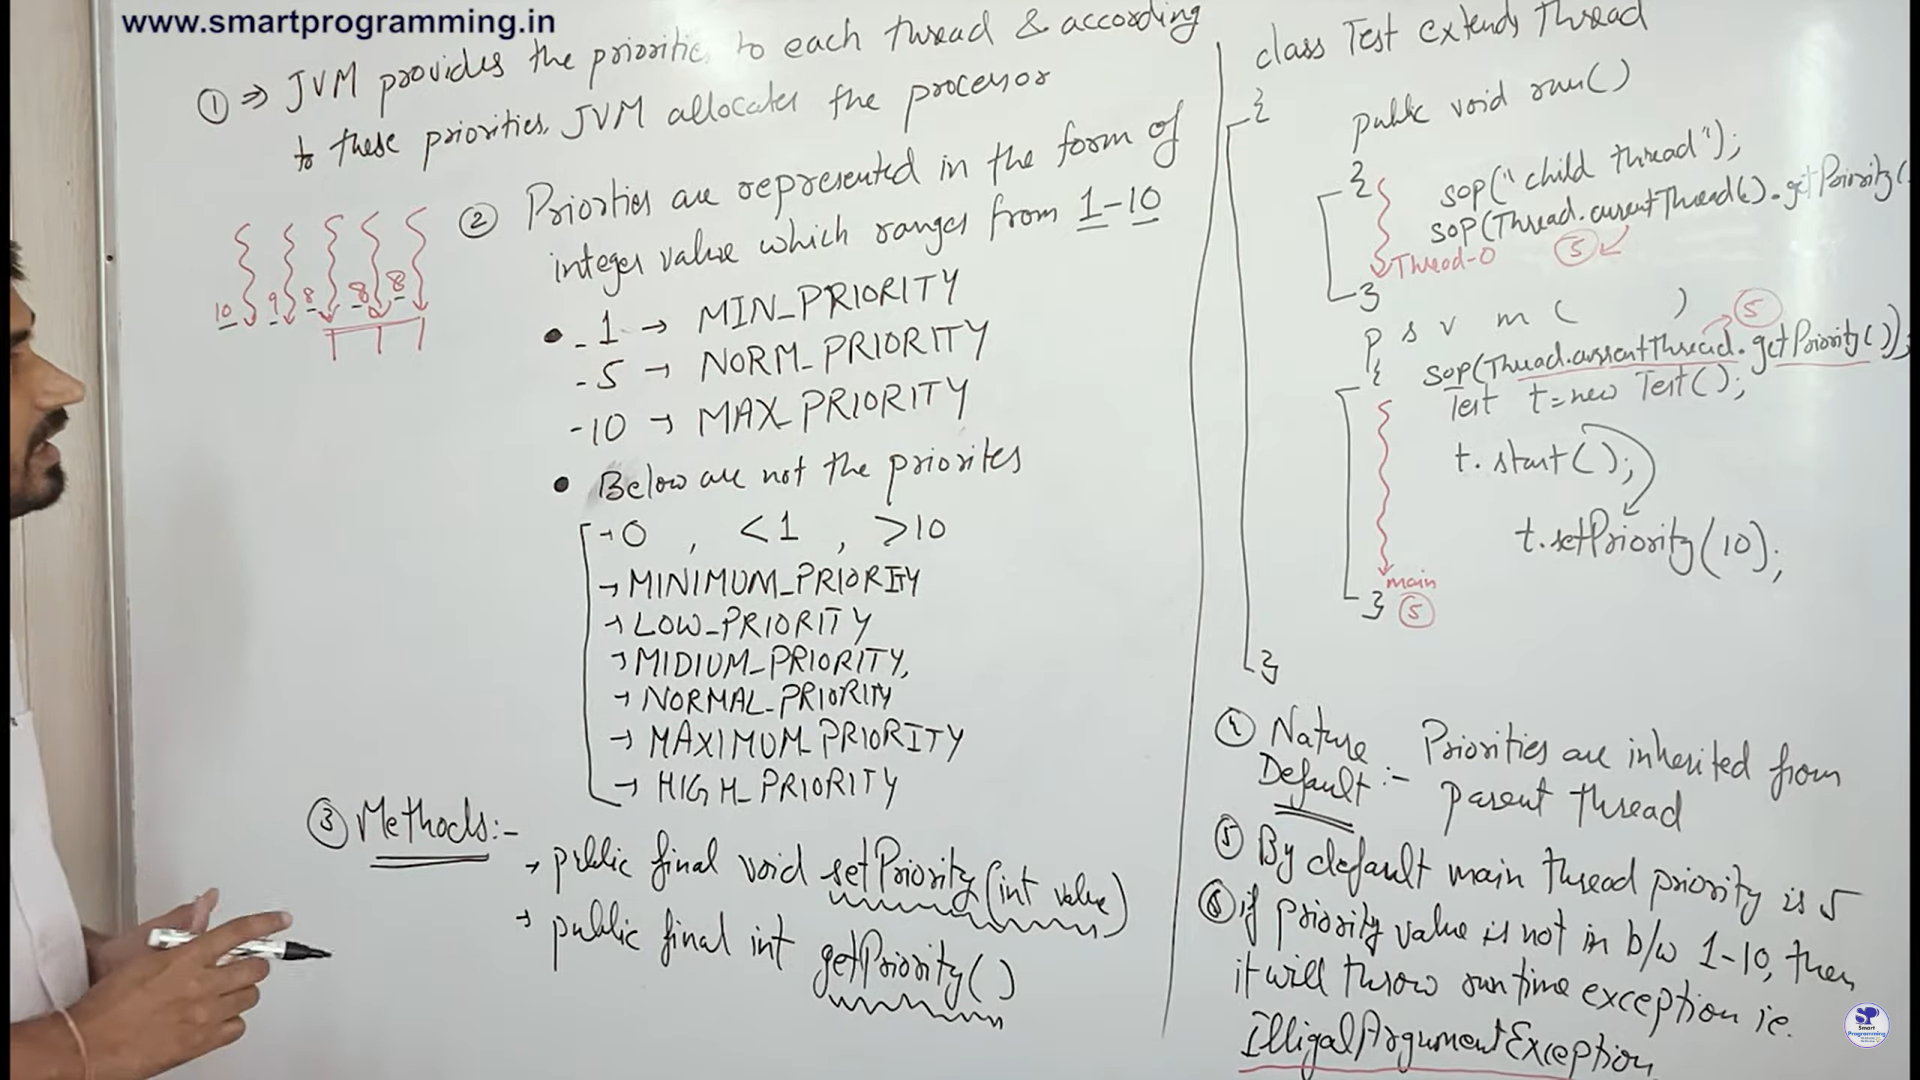 www.smartprogramming.in
① ⇒ JVM provides the prioritie to each thread & according
to these priorities, JVM allocates the processor
② Priorties are represented in the form of
integer value which ranges from 1-10
10 9 8 8 8
• - 1 → MIN_PRIORITY
- 5 → NORM_PRIORITY
- 10 → MAX_PRIORITY
• Below are not the priorites
→ 0 , <1 , >10
→ MINIMUM_PRIORITY
→ LOW_PRIORITY
→ MIDIUM_PRIORITY,
→ NORMAL_PRIORITY
→ MAXIMUM_PRIORITY
→ HIGH_PRIORITY
③ Methods:-
→ public final void setPriority(int value)
→ public final int getPriority()
class Test extends Thread
{
public void run()
{
sop("child thread");
sop(Thread.currentThread().getPriority(
Thread-0 ⑤
}
p s v m ( )
⑤
{
sop(Thread.currentThread.getPriority());
Test t=new Test();
t.start();
t.setPriority(10);
main
} ⑤
}
④ Nature Priorities are inherited from
Default:- parent thread
⑤ By default main thread priority is 5
⑥ if priority value is not in b/w 1-10, then
it will throw runtime exception ie.
IlligalArgumentException
SP
Smart
Programming